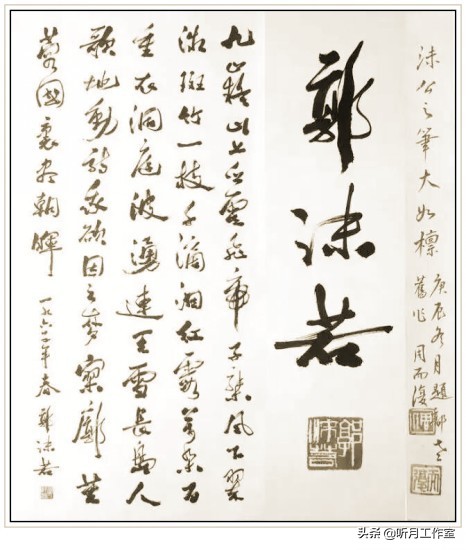 沫公之筆大如椽
庚辰冬月題郭老
舊作 周而復
郭沫若
九嶷山上白雲飛帝子乘風下翠
微斑竹一枝千滴淚紅霞萬朵百
重衣洞庭波湧連天雪長島人
歌地動詩我欲因之夢寥廓芙
蓉國裏盡朝暉 一九六二年春 郭沫若
头条 @听月工作室